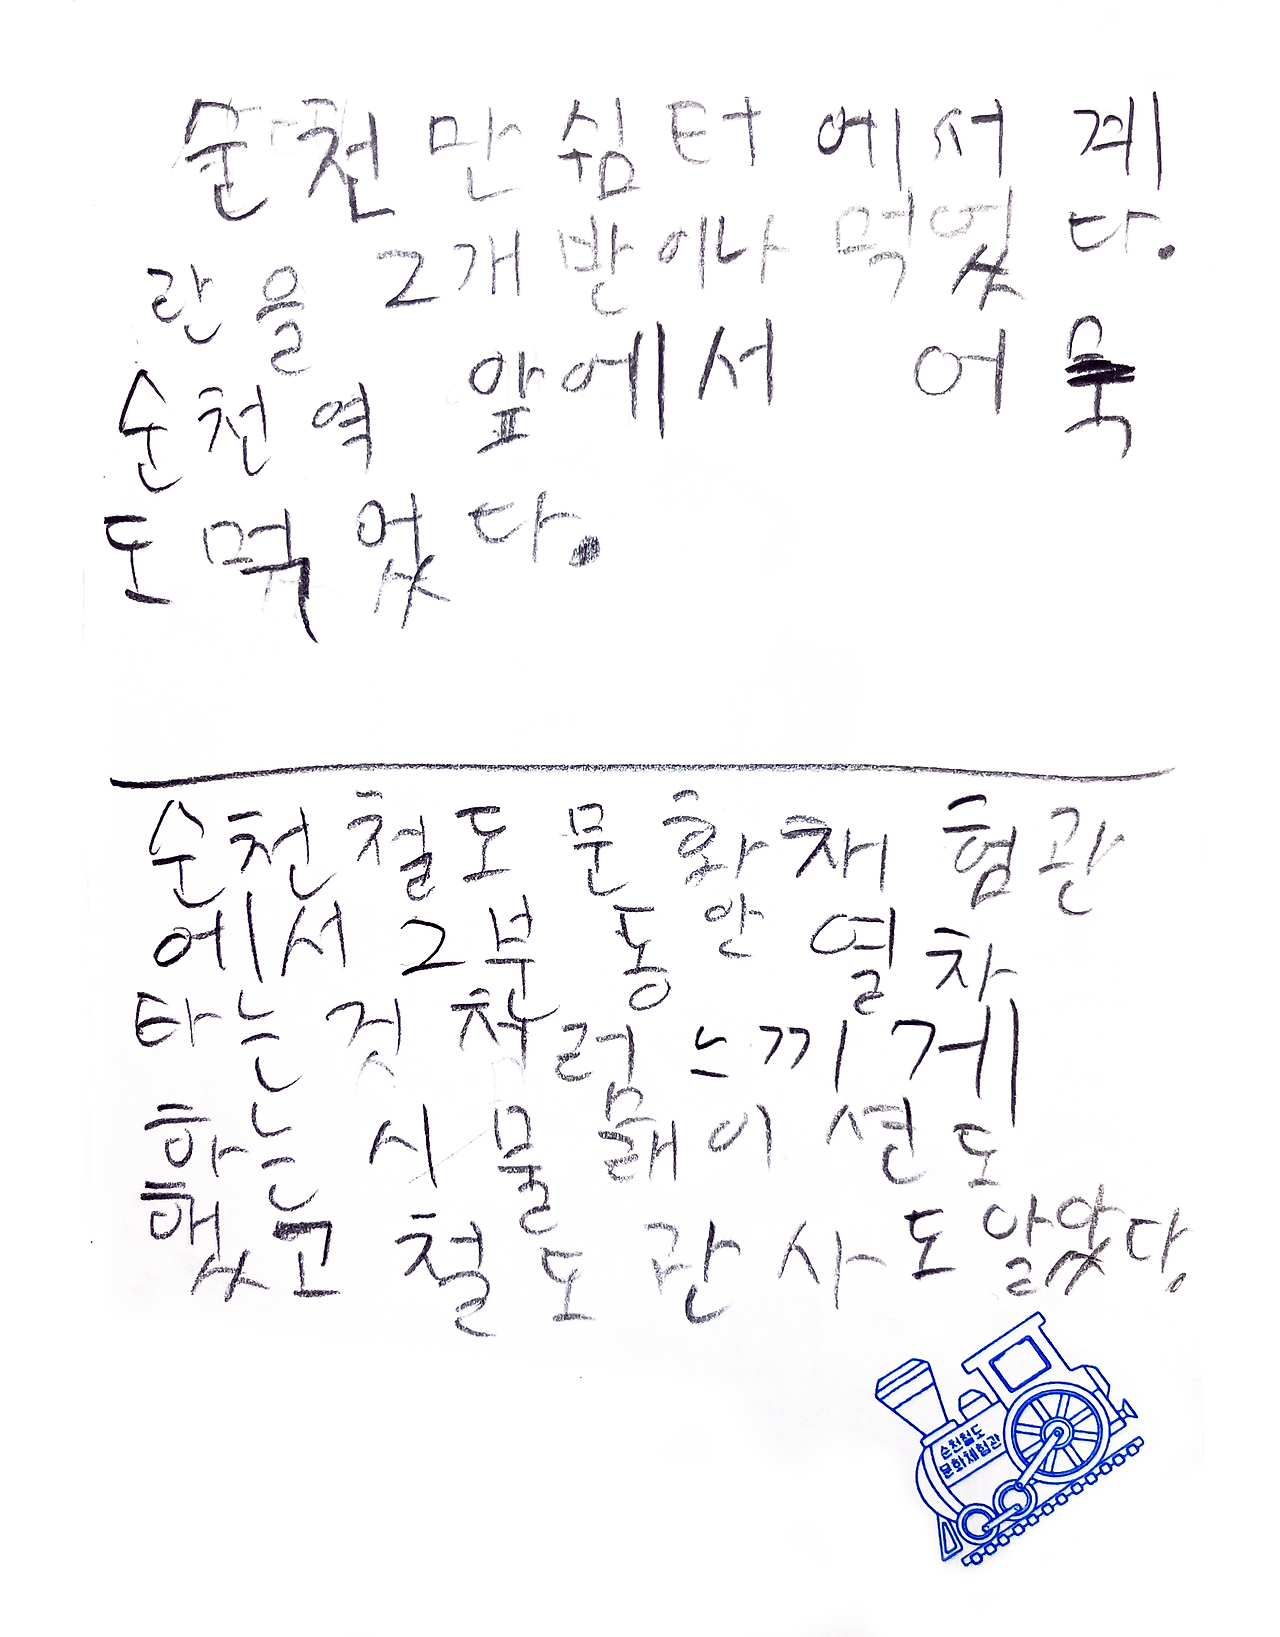 순천만쉼터에서 계
란을 2개 반이나 먹었다.
순천역 앞에서 어묵
도 먹었다.
순천철도문화채험관
에서 2부 동안 열차
타는 것 처럼 느끼게
하는 시물래이션도
했고 철도 관사도 알았다.
순천철도
문화체험관